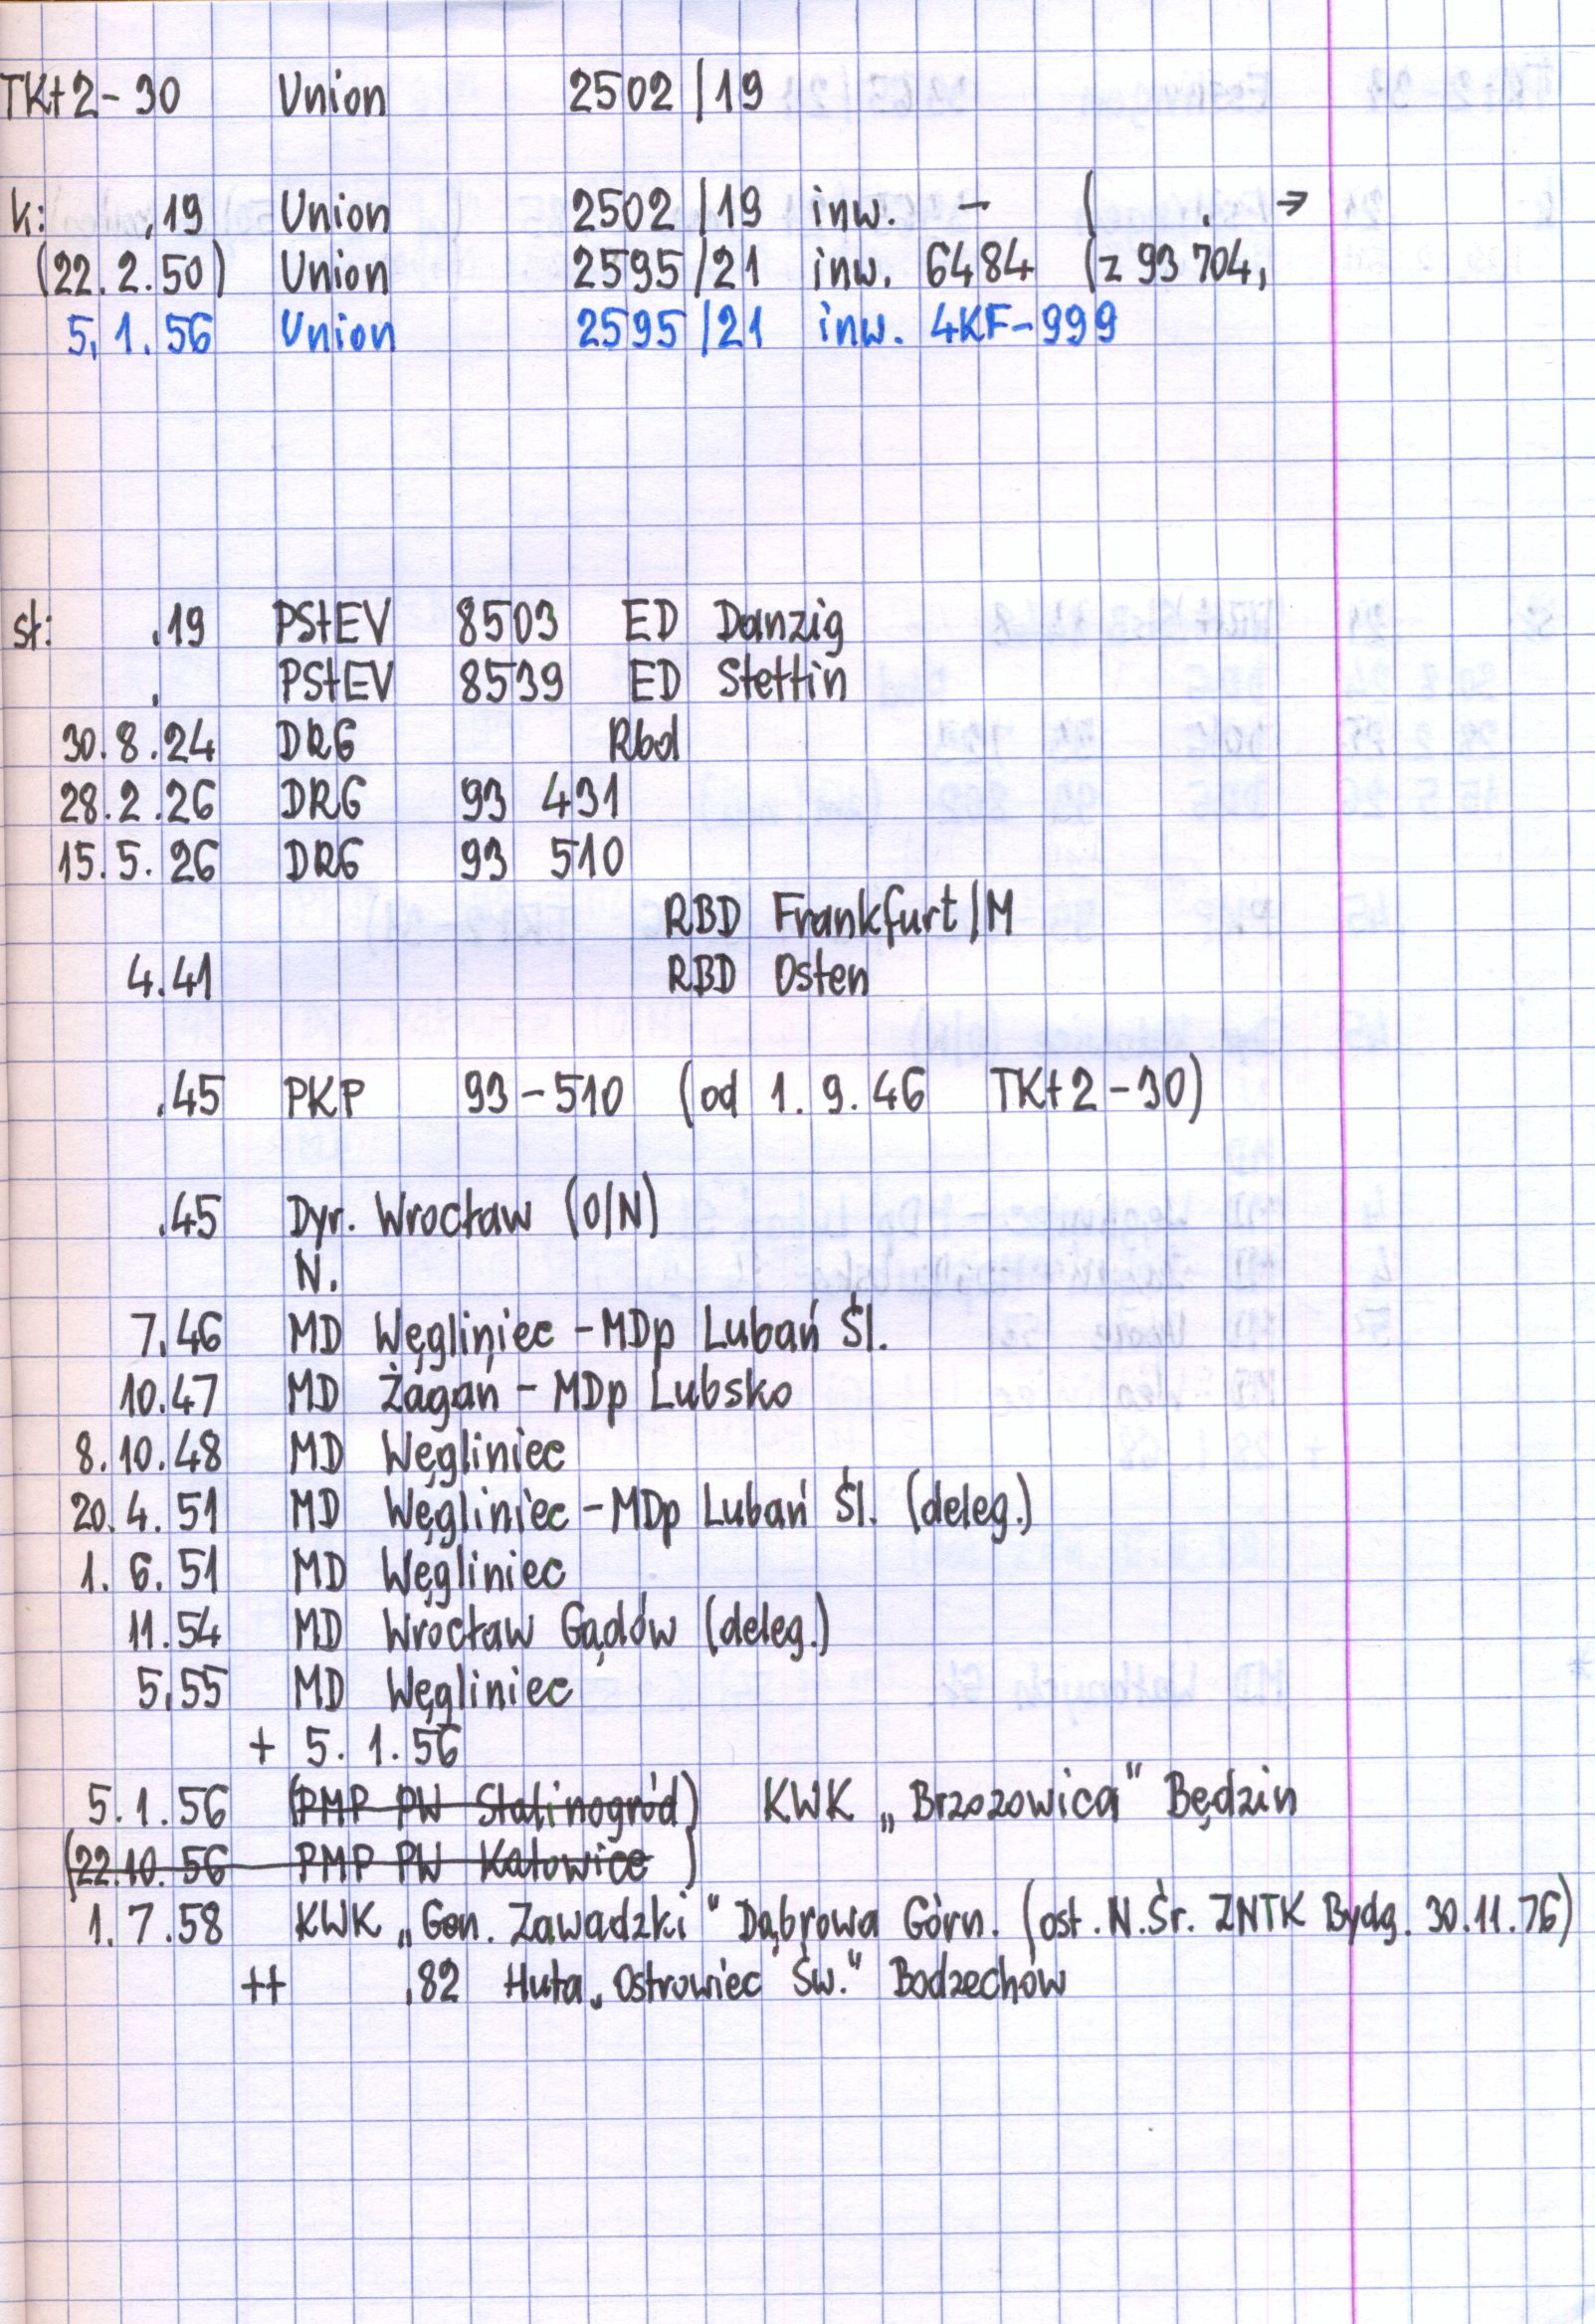 TKt2-30 Union 2502/19
k: .19 Union 2502/19 inw. - ( . →
(22.2.50) Union 2595/21 inw. 6484 (z 93 704,
5.1.56 Union 2595/21 inw. 4KF-999
st: .19 PStEV 8503 ED Danzig
. PStEV 8539 ED Stettin
30.8.24 DRG Rbd
28.2.26 DRG 93 431
15.5.26 DRG 93 510
RBD Frankfurt/M
4.41 RBD Osten
.45 PKP 93-510 (od 1.9.46 TKt2-30)
.45 Dyr. Wrocław (O/N)
N.
7.46 MD Węgliniec - MDp Lubań Śl.
10.47 MD Żagań - MDp Lubsko
8.10.48 MD Węgliniec
20.4.51 MD Węgliniec - MDp Lubań Śl. (deleg.)
1.6.51 MD Węgliniec
11.54 MD Wrocław Gądów (deleg.)
5.55 MD Węgliniec
+ 5.1.56
5.1.56 (PMP PW Stalinogród) KWK „Brzozowica" Będzin
(22.10.56 PMP PW Katowice)
1.7.58 KWK „Gen. Zawadzki" Dąbrowa Górn. (ost. N.Śr. ZNTK Bydg. 30.11.76)
++ .82 Huta „Ostrowiec Św." Bodzechów